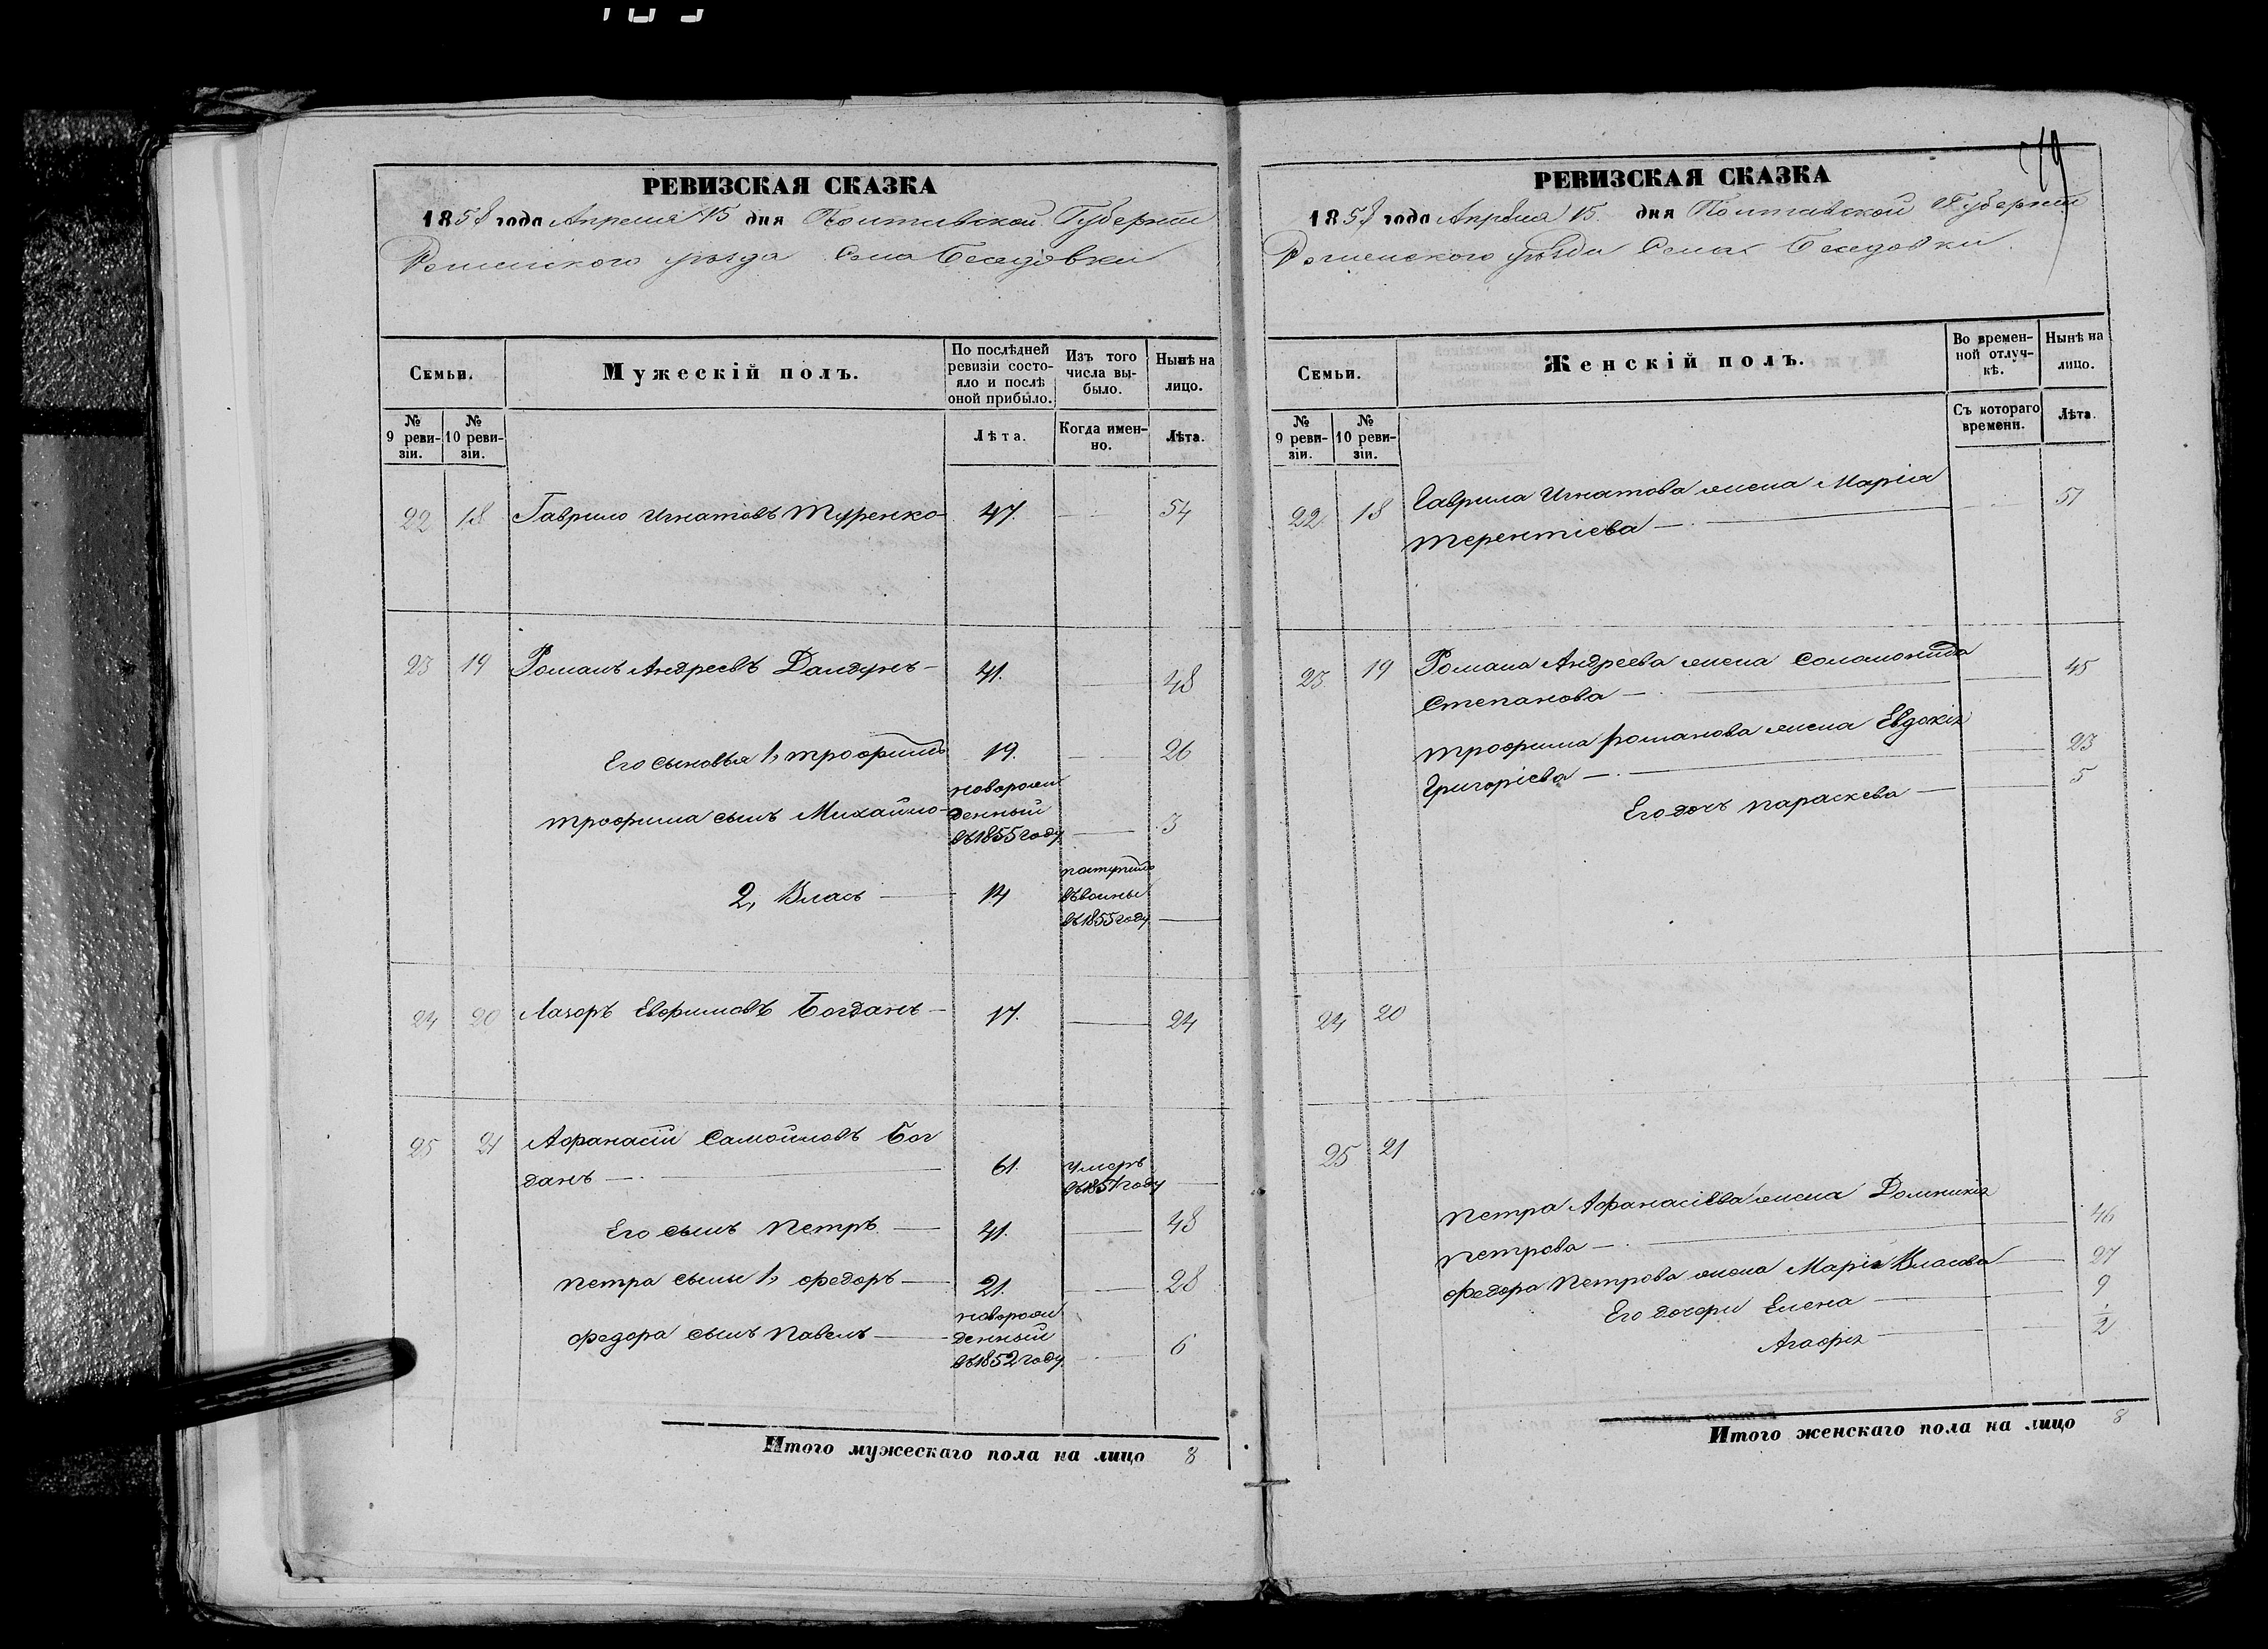 РЕВИЗСКАЯ СКАЗКА
1858 года Апреля 15 дня Полтавской Губернии
Роменского уѣзда Села Беседовки
Семьи.
Мужескій полъ.
По послѣдней ревизіи состояло и послѣ оной прибыло.
Изъ того числа выбыло.
Нынѣ на лицо.
№ 9 ревизіи.
№ 10 ревизіи.
Лѣта.
Когда именно.
Лѣта.
22 18 Гаврило Игнатовъ Туренко 47. 54
23 19 Романъ Андреевъ Далдунъ 41. 48
Его сыновья 1, Трофимъ 19. 26
Трофима сынъ Михайло новорож
денный
въ 1855 году 3
2, Власъ 14 поступилъ
въ 1855 году
24 20 Лазоръ Евфимовъ Богданъ 17. 24
25 21 Афанасій Самойловъ Бог
данъ 61. Умеръ
въ 1851 году
Его сынъ Петръ 41. 48
Петра сыны 1, Федоръ 21. 28
Федора сынъ Павелъ новорож
денный
въ 1852 году 6
Итого мужескаго пола на лицо 8
79
РЕВИЗСКАЯ СКАЗКА
1858 года Апрѣля 15. дня Полтавской Губерніи
Роменского уѣзда Села Беседовки.
Семьи.
Женскій полъ.
Во временной отлучкѣ.
Нынѣ на лицо.
№ 9 ревизіи.
№ 10 ревизіи.
Съ котораго времени.
Лѣта.
22 18 Гаврила Игнатова жена Марія
Терентіева 51
23 19 Романа Андреева жена Соломонида
Степанова 45
Трофима Романова жена Евдокія
Григоріева 23
Его дочъ Параскева 5
24 20
25 21
Петра Афанасіева жена Домникія
Петрова 46
Федора Петрова жена Марія Власова 27
Его дочери Елена 9
Агафія 1/2
Итого женскаго пола на лицо 8